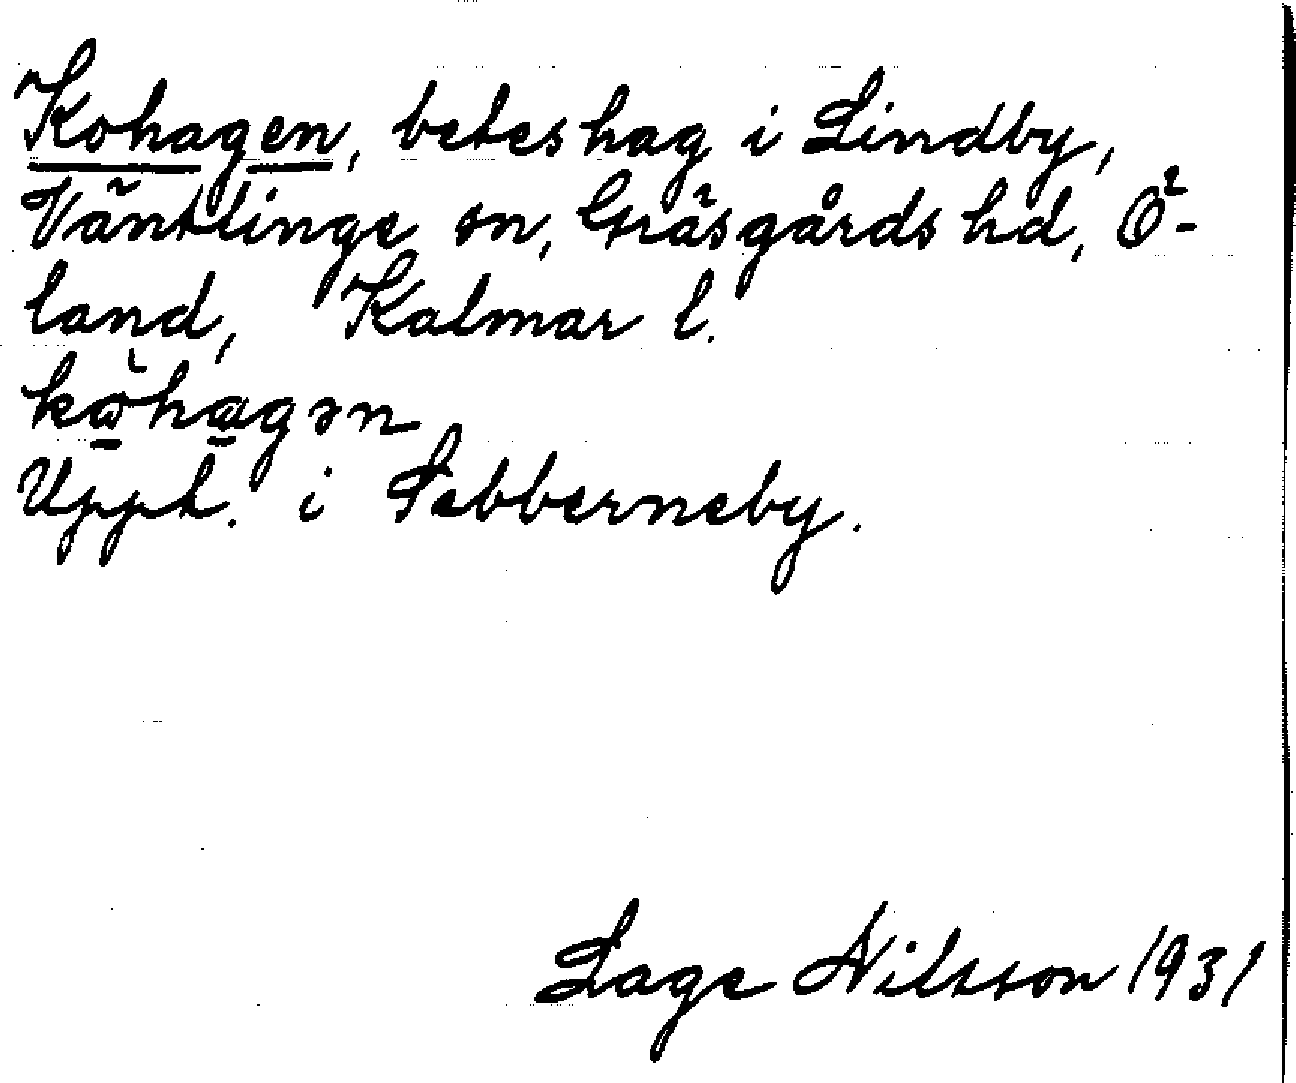 Kohagen, beteshag i Lindby,
Ventlinge sn, Gräsgårds hd, Ö-
land, Kalmar l.
kòhagən
Uppt. i Sebberneby.
Lage Nilsson 1931